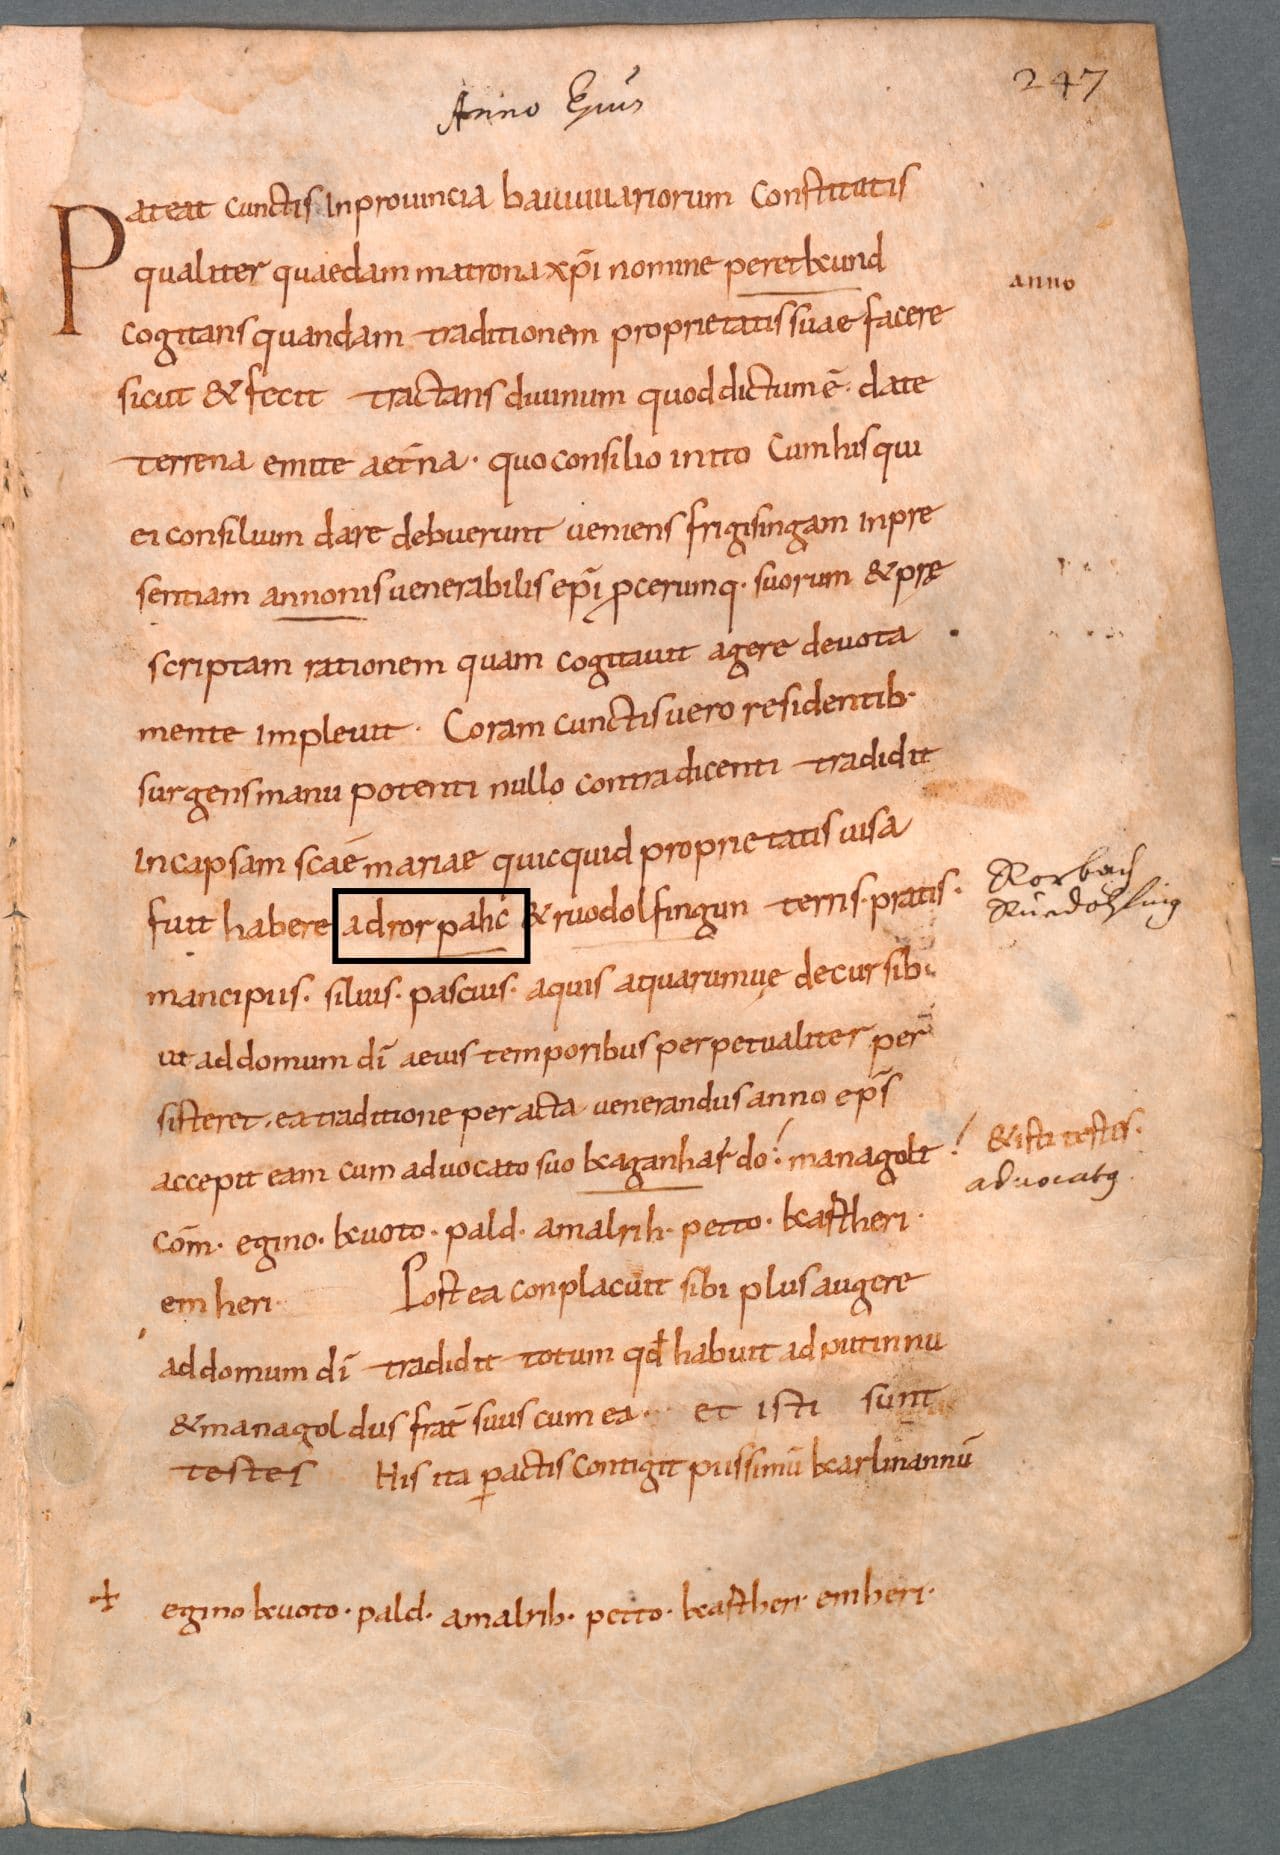 Anno Ejus
247
Pateat cunctis in prouincia baiuuuariorum constitutis
qualiter quaedam matrona xp̄i nomine peretkund
anno
cogitans quandam traditionem proprietatis suae facere
sicut & fecit tractans diuinum quod dictum ē· date
terrena emite aet̄na· quo consilio inito cum his qui
ei consilium dare debuerunt ueniens frigisingam in pre
sentiam annonis uenerabilis ep̄i ꝓcerumq· suorum & prę
scriptam rationem quam cogitauit agere deuota
mente impleuit· Coram cunctis uero residentib·
surgens manu potenti nullo contradicenti tradidit
in capsam scāe mariae quicquid proprietatis uisa
fuit habere ad ror pahc & ruodolfingun terris· pratis·
Rorbach
Ruedolfing
mancipiis· siluis· pascuis· aquis aquarumuę decursib·
ut ad domum dī aeuis temporibus perpetualiter per
sisteret· ea traditione peracta uenerandus anno ep̄s
accepit eam cum aduocato suo kaganhar̄do· managolt
& isti testes·
aduocatꝯ
com̄· egino· kuoto· pald· amalrih· petto· kastheri·
emheri· Postea conplacuit sibi plus augere
ad domum dī tradidit totum qđ habuit ad putinnu
& managoldus frat̄ suus cum ea· et isti sunt
testes His ita ꝑactis contigit piissimū karlmannū
+ egino kuoto· pald· amalrih· petto· kastheri· emheri·